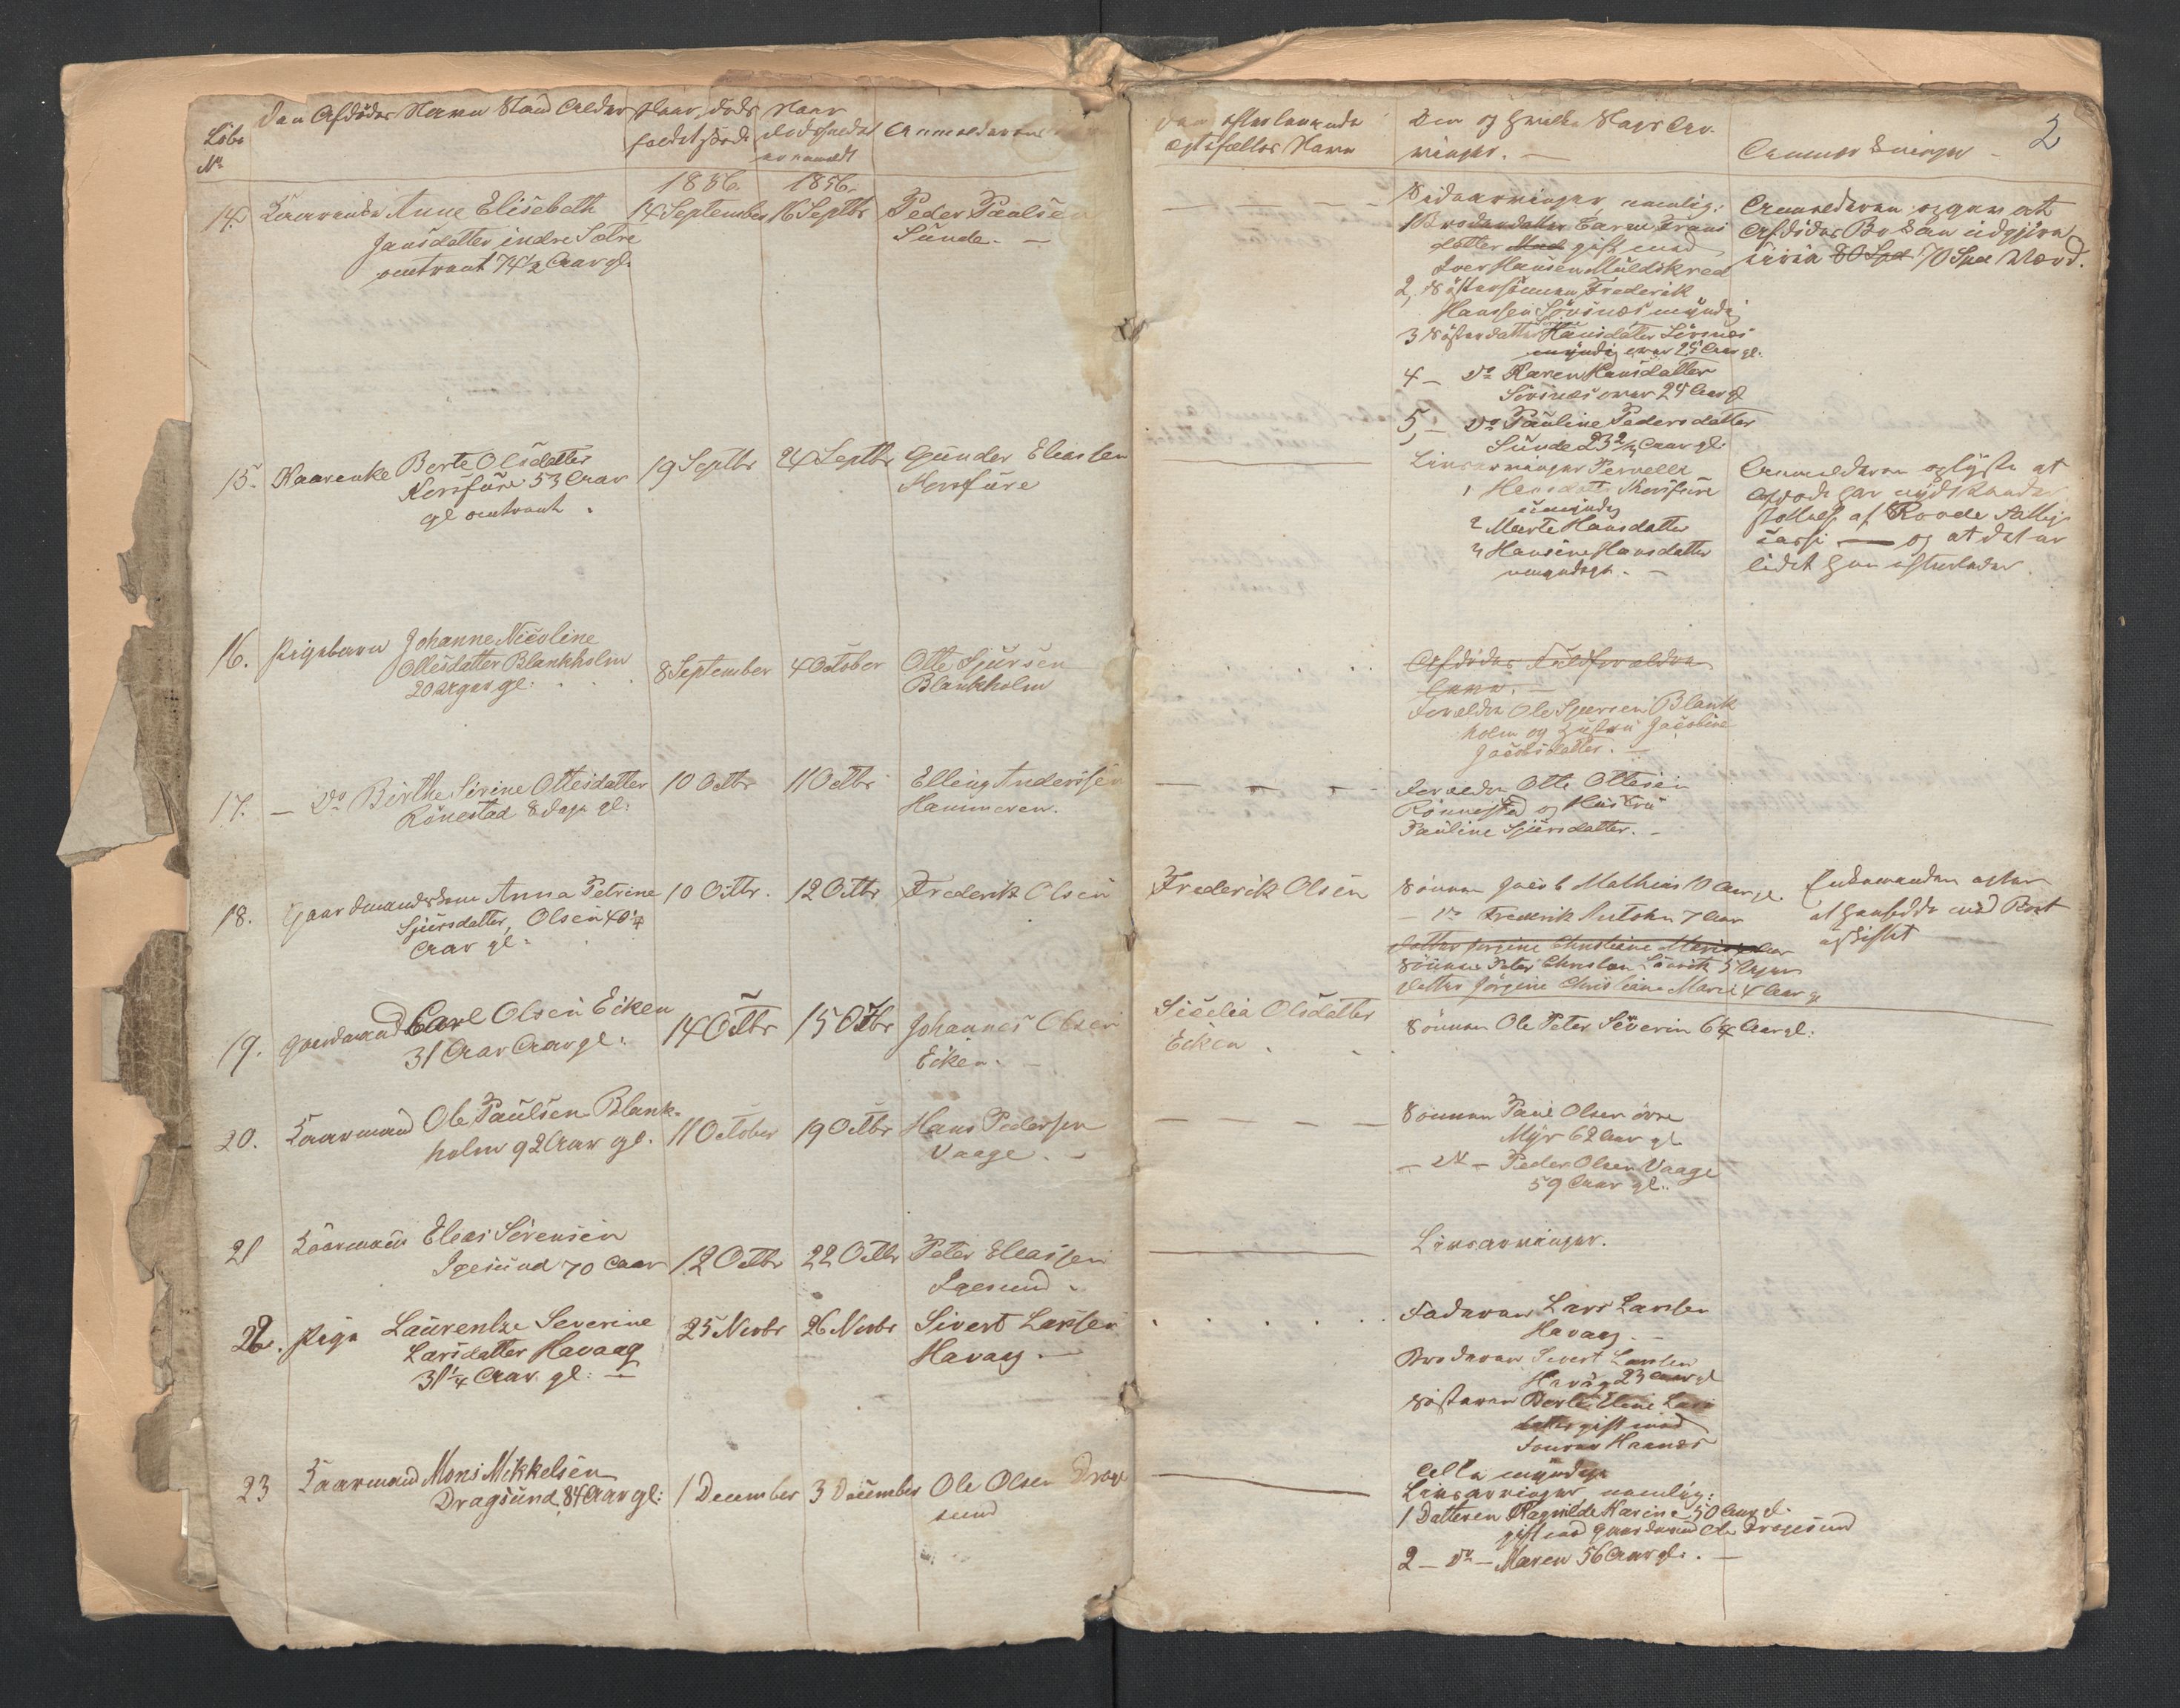 Löbe
No
Den Afdødes Navn Stand Alder
Naar døds
faldet skede
Naar
dødsfaldet
er anmeldt
Anmelderens
1856.
1856.
14. Kaarenke Anne Elisebeth
Jansdatter indre Sætre
omtrent 74½ Aar gl.
14 September
16 Septbr
Peder Paulsen
Sunde. —
15. Kaarenke Berte Olsdatter
53 Aar
gl omtrent.
19 Septbr
24 Septbr
Gunder Eliassen
16. Pigebarn Johanne Nicoline
Ottesdatter Blankholm
20 Uger gl:
8 September
4 October
Otte Sjursen
Blankholm
17. — Do Birthe Sirine Ottesdatter
Rönestad 8 dage gl:
10 Octbr
11 Octbr
Elling Anderssen
Hammeren.
18. Gaardmandskone Anna Petrine
Sjursdatter, Olsen 40¼
Aar gl:
10 Octbr.
12 Octbr
Frederik Olsen
19. Gaardmand Carl Olsen Eiken
31 Aar Aar gl:
14 Octbr
15 Octbr
Johannes Olsen
Eiken. —
20. Kaarmand Ole Paulsen Blank-
holm 92 Aar gl.
11 October
19 Octbr
Hans Pedersen
Vaage. —
21 Kaarmand Elias Sörensen
Igesund 70 Aar
12 Octbr
22 Octbr
Peter Eliassen
Igesund.
22. Pige Laurentze Severine
Larsdatter Havaag
31¼ Aar gl: —
25 Novbr
26 Novbr
Sivert Larsen
Havaag —
23 Kaarmand Mons Mikkelsen
Dragsund, 84 Aar gl:
1 December
3 December
Ole Olsen Drag
sund
2
Den efterlevende
Ægtefælles Navn
Den og hvilke Slags Ar-
vinger. —
Anmærkninger —
Sidearvinger nemlig:
1 Broderdatter Frans
datter Med gift med
Iver Hansen Muldskred
2, Søstersønnen Frederik
Hanssen Sörsnæs myndig
3 Søsterdatter Hansdatter
myndig over 25 Aar gl.
4 — Do Karen Hansdatter
over 24 Aar gl
5, — Do Pauline Pedersdatter
Sunde 23½ Aar gl:
Anmelderen opgav at
Afdødes Bo kan udgjøre
circa 80 Spd 70 Spd Værd.
Livsarvinger Pernelle
1 Hansdatter
umyndig
2 Marte Hansdatter
3 Hansine Hansdatter
umyndige. —
Anmelderen oplyste at
Afdøde har nydt
af Rovde Fattig
casse — og at det er
lidet hun efterlader
Afdødes Fuldforældre
Forældre Ole Sjursen Blank
holm og Hustru Jacobine
Jacobsdatter. —
Forældre Otte Ottesen
Rönnestad og Hustru
Pauline Sjursdatter. —
Frederik Olsen
Sønnen Jacob Mathias 10 Aar gl
— Do Frederik Antohn 7 Aar
Datter Jorgine Christiane Marie 4 Aar
Sønnen Peter Christian
Datter Jörgine Christiane Marie 4 Aar gl
Enkemanden agter
at hensidde med Boet
uskiftet
Sicelia Olsdatter
Eiken.
Sønnen Ole Peter Severin 6¼ Aar gl:
Sønnen Paul Olsen övre
Myr 62 Aar gl
— Do — Peder Olsen Vaage
59 Aar gl..
Livsarvinger.
Faderen Lars Larsen
Havaag —
Broderen Sivert Larsen
Havaag 23 Aar gl
Søsteren Berte Eline Lars
datter gift med
Alle myndige
Livsarvinger nemlig:
1 Datteren Ragnilde Karine 50 Aar gl.
gift med Gaardmand Ole Dragesund
2 — Do — Maren 56 Aar gl. —